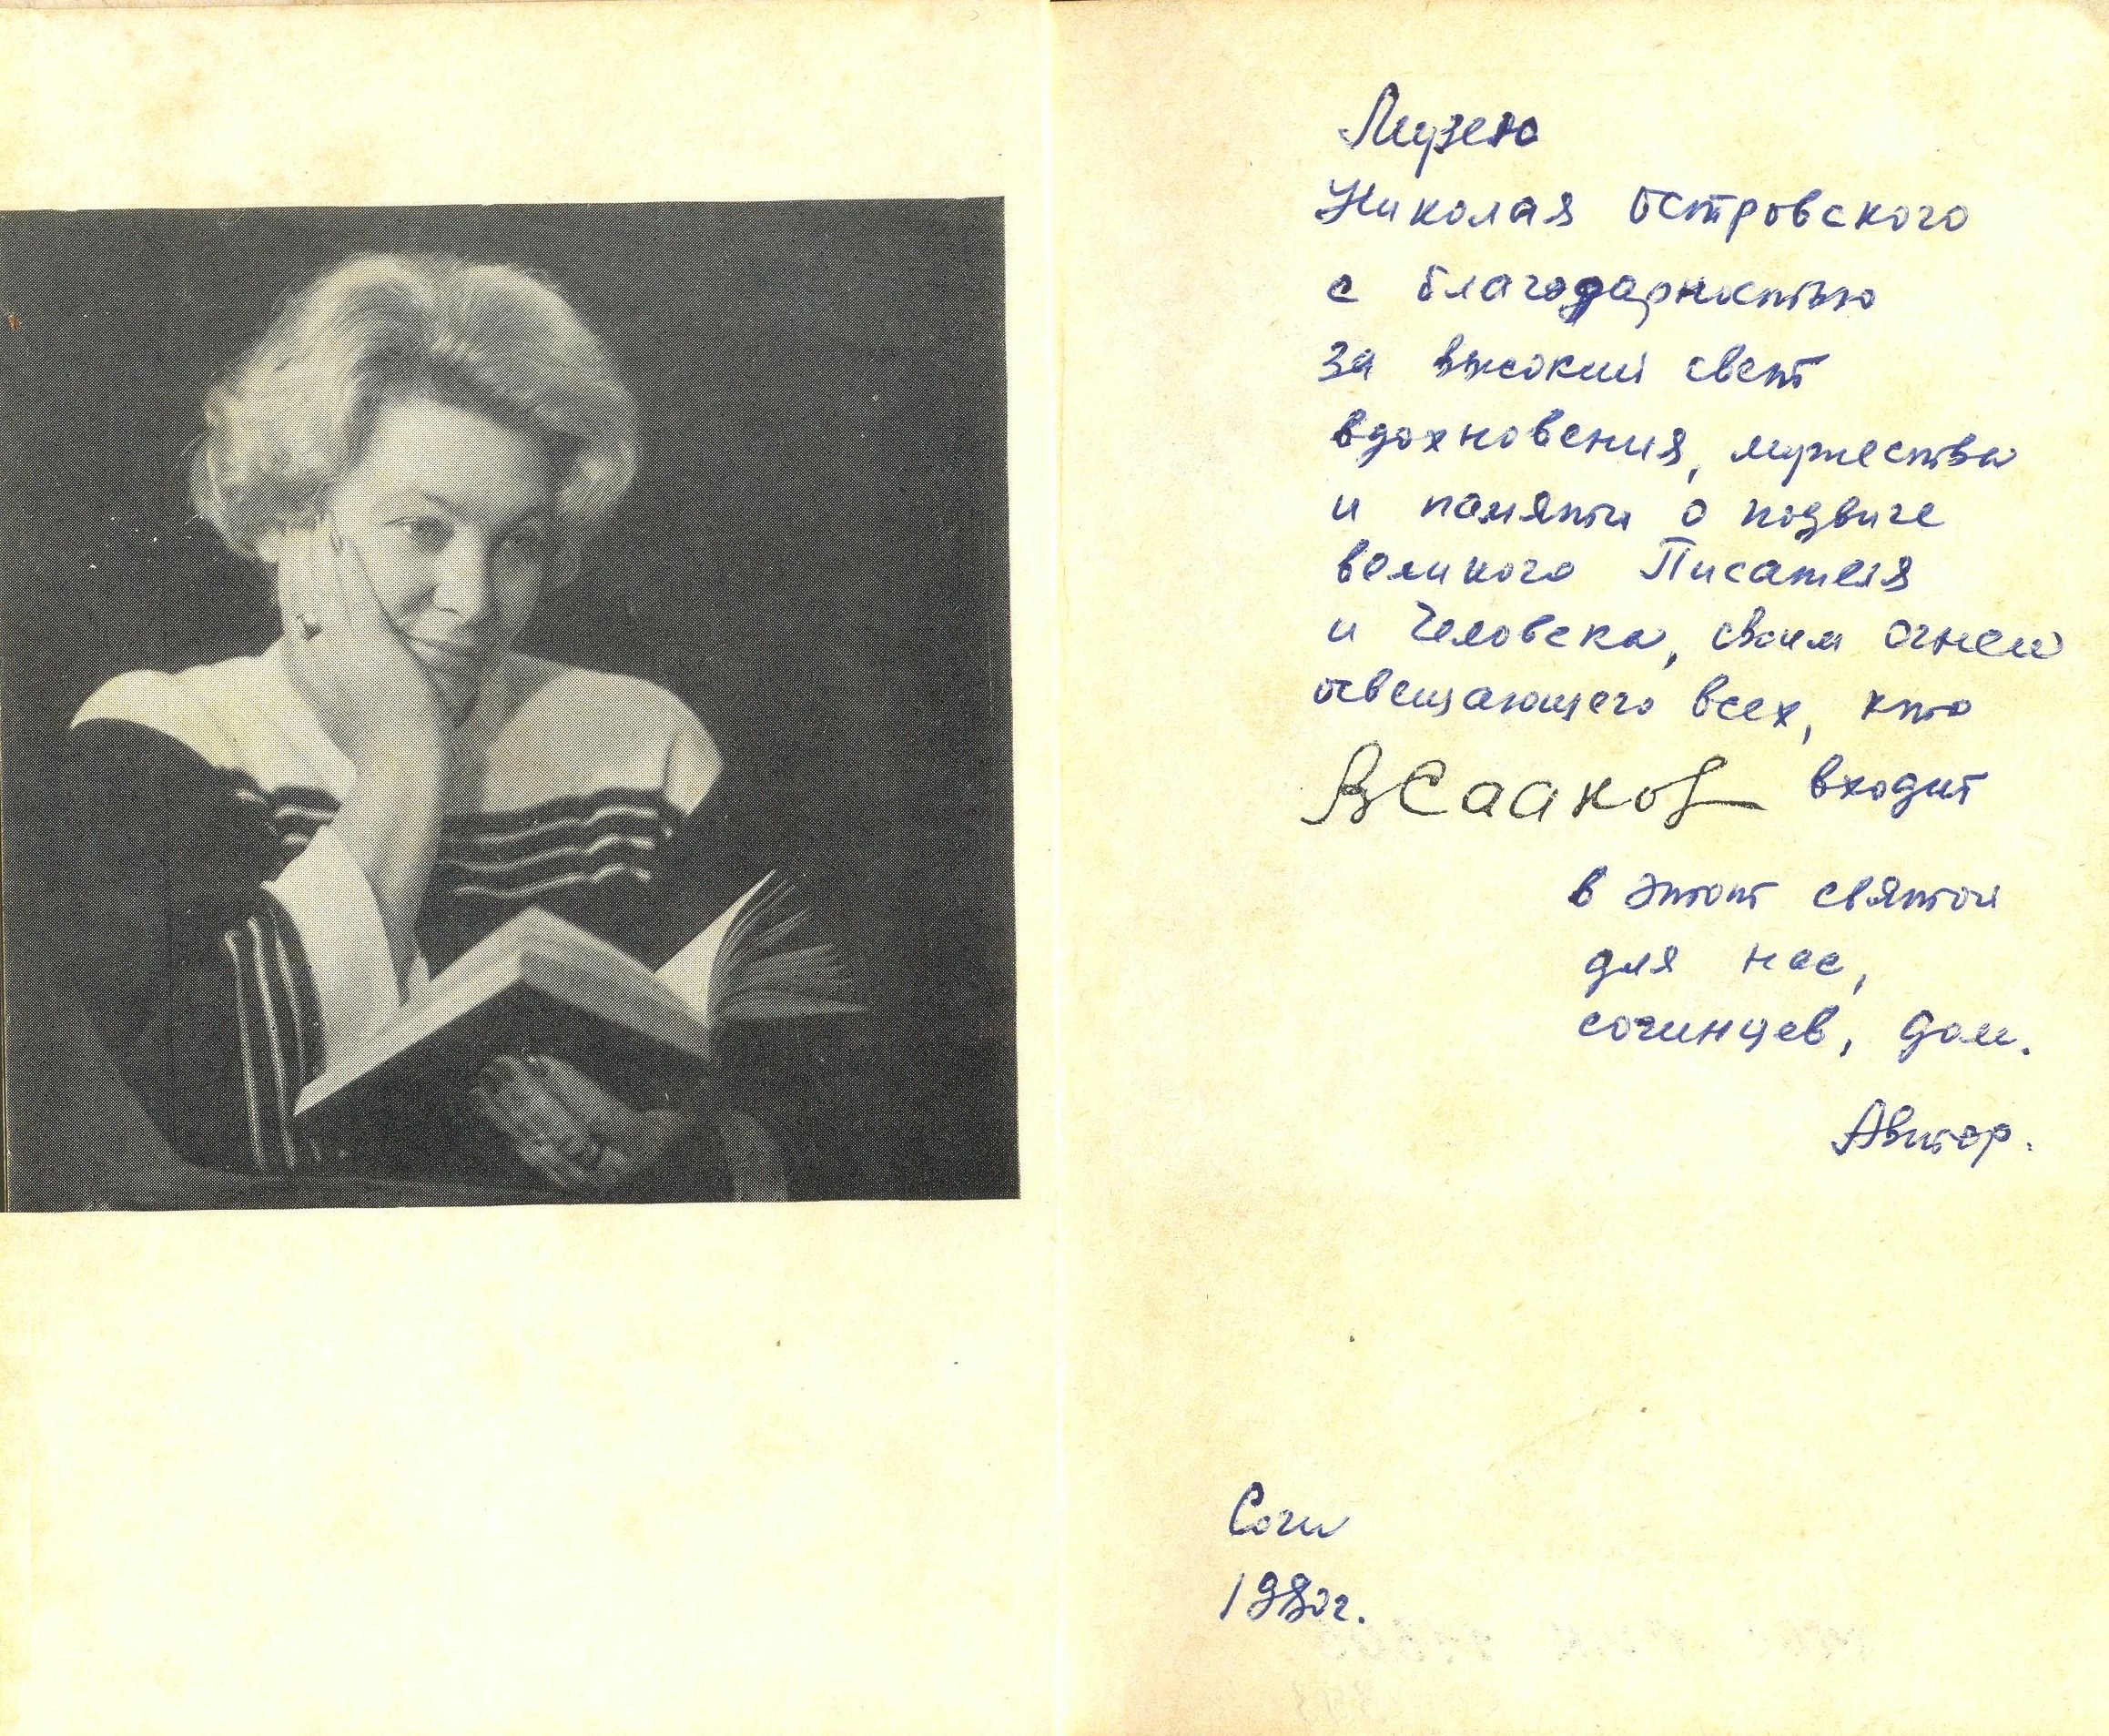 Музею
Николая Островского
с благодарностью
за высокий свет
вдохновения, мужества
и памяти о подвиге
великого Писателя
и Человека, своим огнем
освещающего всех, кто
ВСааков входит
в этот святой
для нас,
сочинцев, дом.
Автор.
Сочи
г.